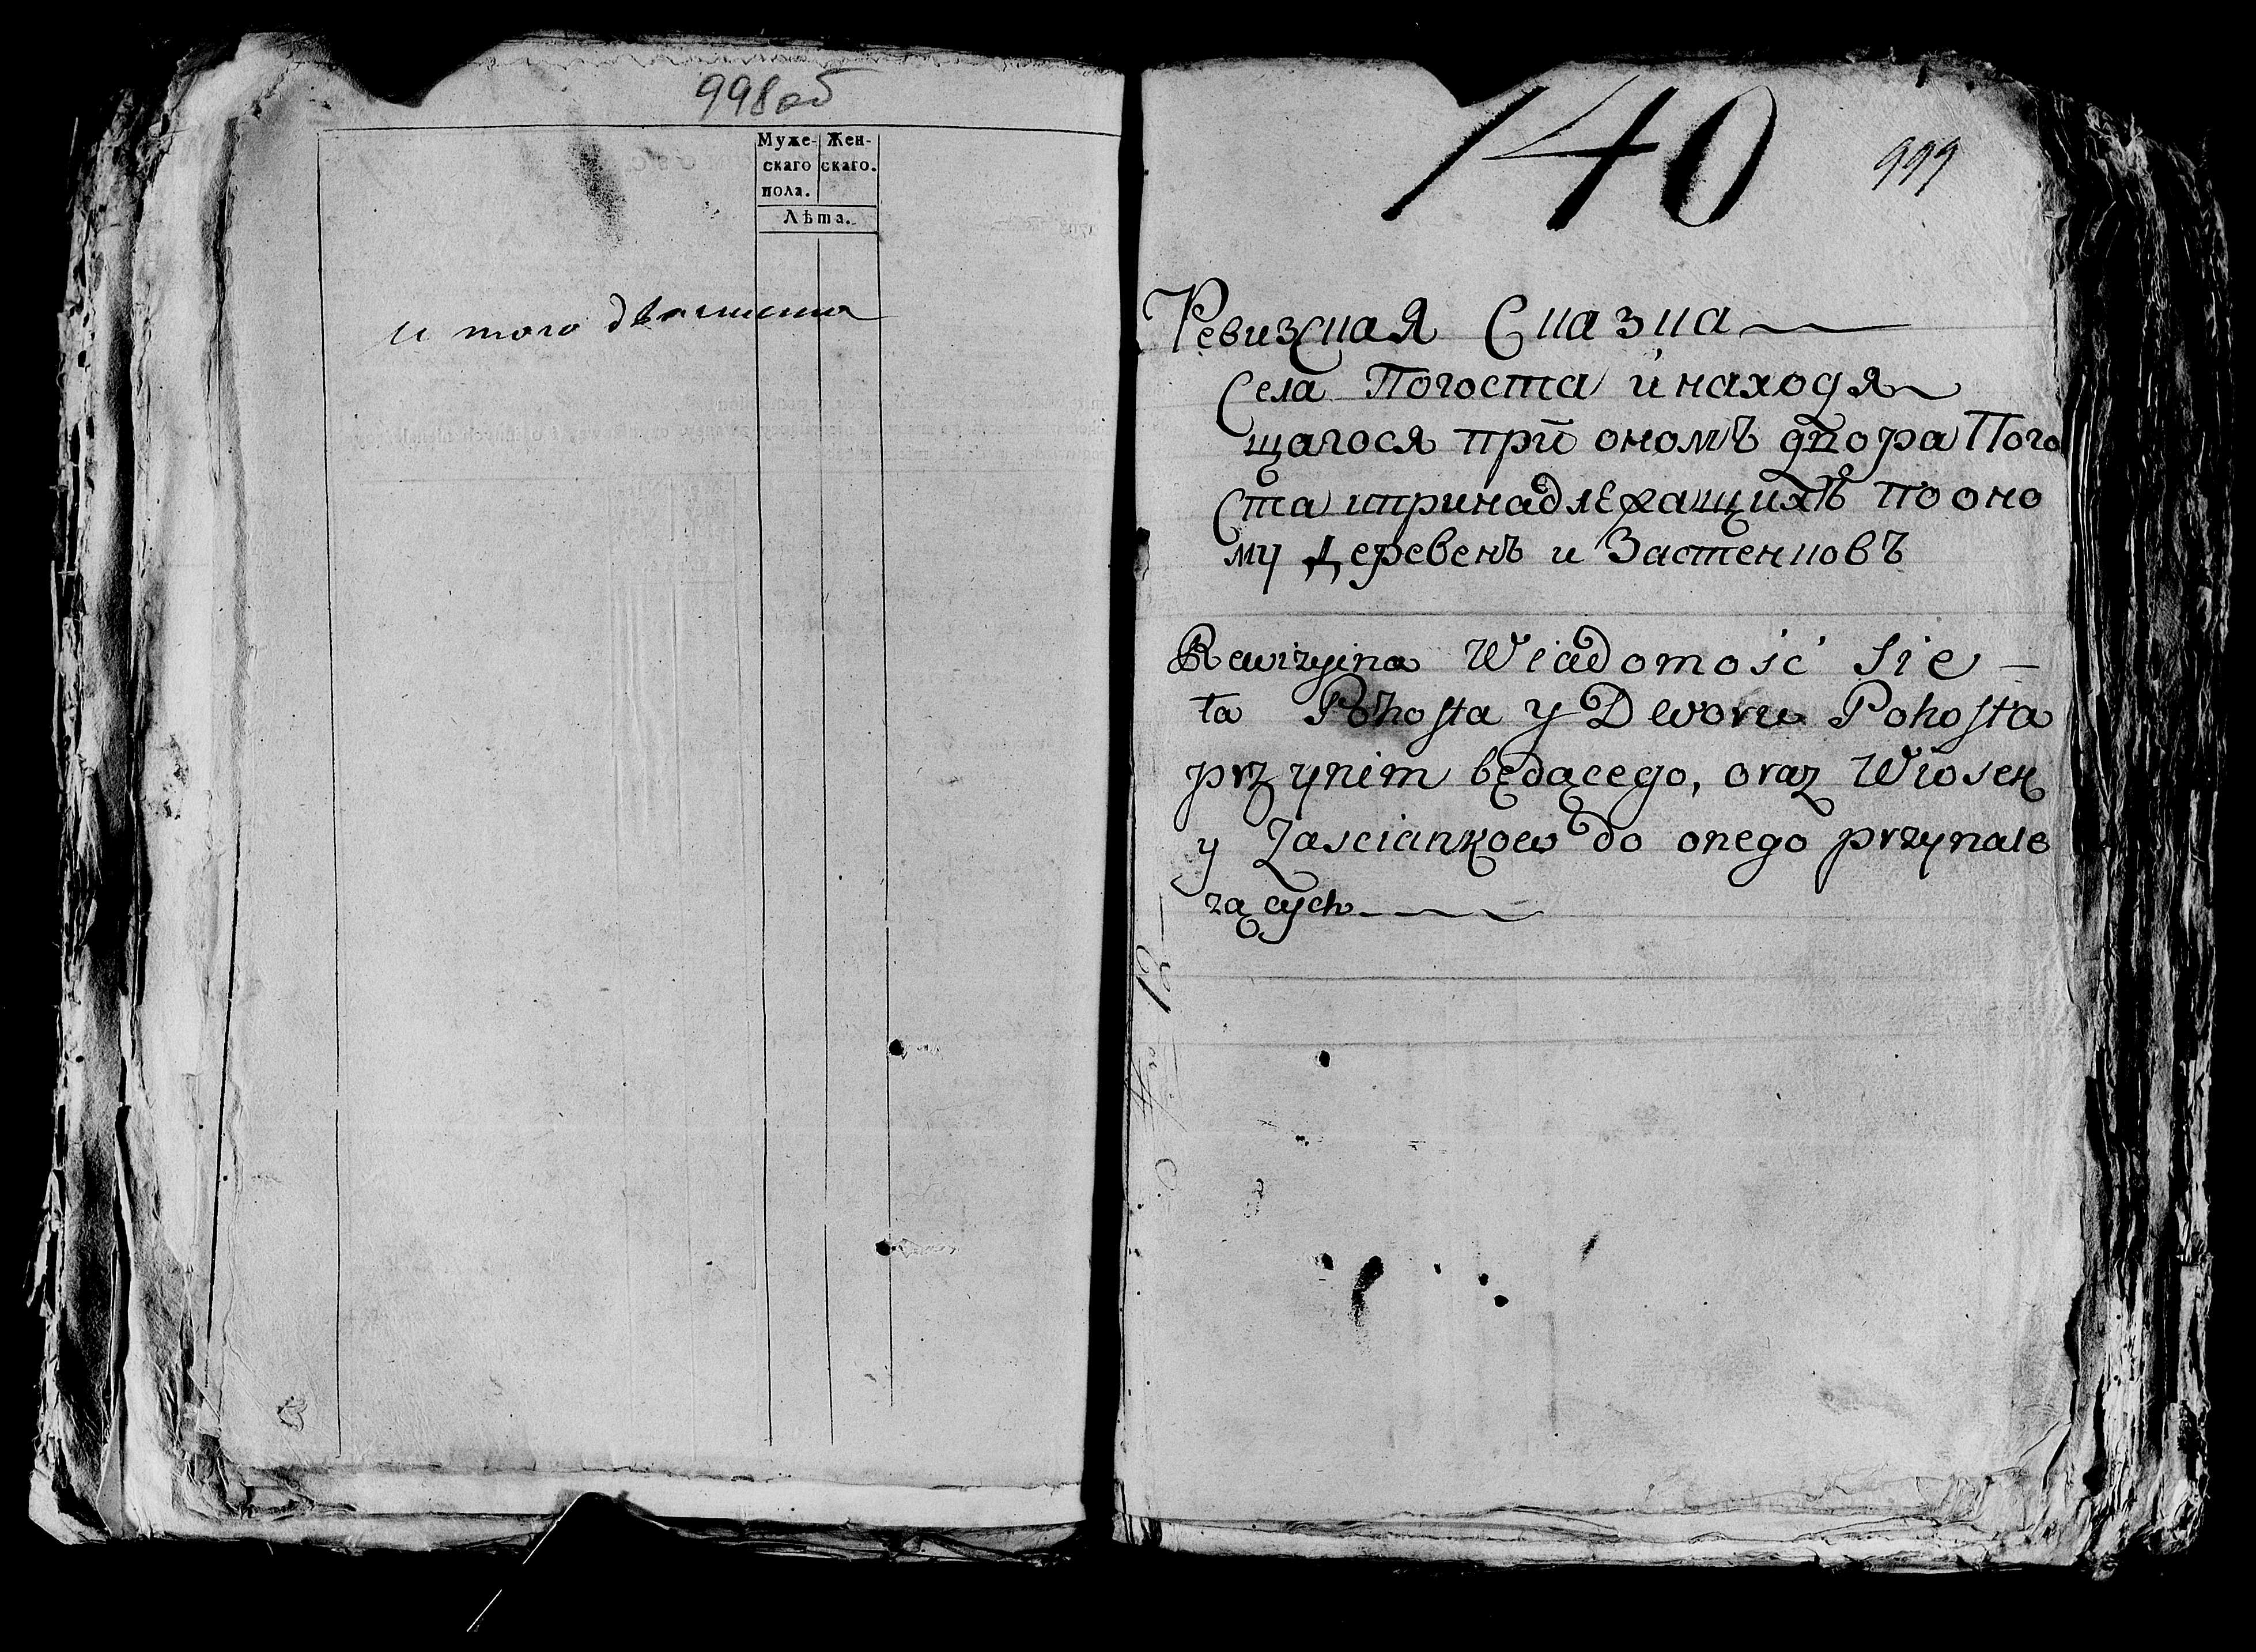 998об
Муже- Жен-
скаго скаго.
пола.
Лѣта.
и того два листа
140
999
Ревизская Сказка
Села Погоста и находя
щагося при ономъ двора Пого
ста ипринадлежащихъ по оно
му Деревенъ и Застенковъ
Rewizyina Wiadomość Sie -
ła Pohosta y Dworu Pohosta
przynim będącego, oraz Wiosek
y Zasciankow do onego przynale
zących